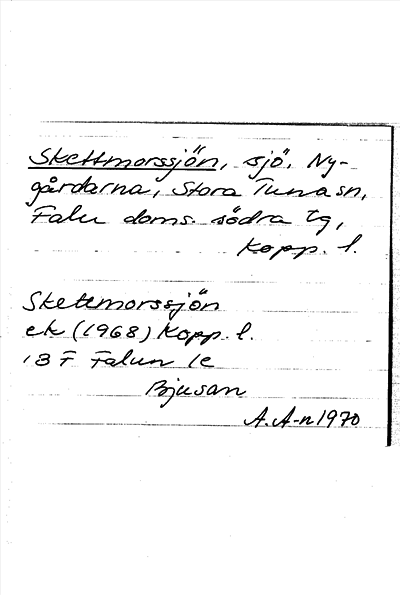 Skettmorssjön, sjö, Ny-
gårdarna, Stora Tuna sn,
Falu doms. södra tg,
Kopp. l.
Skettmorssjön
ek (1968) Kopp. l.
13 F Falun 1c
Bjusan
A. A-n 1970